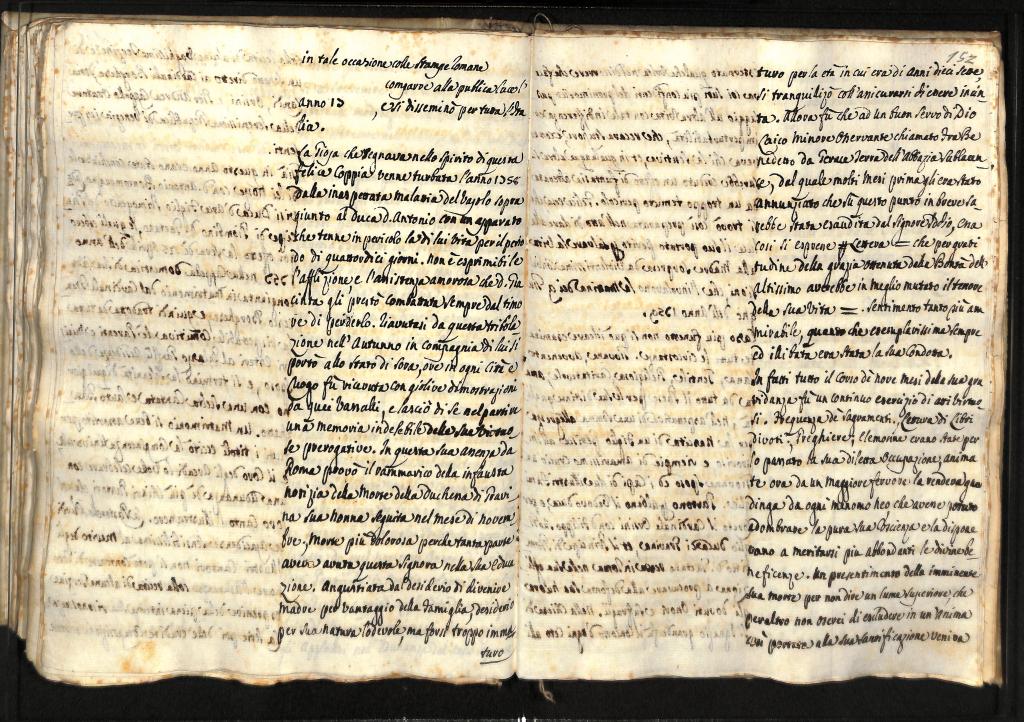 in tale occasione colle stampe Romane
comparve alla publica luce l'
anno 13 , e si diseminò per tutta l'Ita
lia.
La Gioja che regnava nello spirito di questa
felice Coppia venne turbata l'anno 1758
dalla inaspettata malatia del vajolo sopra
giunto al duca d. Antonio con un apparato
che tenne in pericolo la di lui vita per il perio
do di quattordici giorni. non è esprimibile
l'afflizione e l'assistenza amorosa che d. Gia
cinta gli prestò combattuta sempre dal timo
re di perderlo. Riavutasi da questa tribola
zione nell'Autunno in compagnia di lui si
portò allo stato di Sora, ove in ogni Città e
Luogo fù ricevuta con giolive dimostrazioni
da quei Vassalli, e lasciò di se nel partire
una memoria indelebile della sua Virtuo
se prerogative. In questa sua assenza da
Roma provò il rammarico della infausta
notizia della Morte della Duchessa di Gravi
na sua nonna seguita nel mese di novem
bre, Morte più dolorosa perche tanta parte
aveva avuta questa Signora nella sua Educa
zione. Angustiata dal desiderio di divenire
madre per vantaggio della famiglia, desiderio
per sua natura lodevole ma forsi troppo imma
turo
152
turo per la età in cui era di anni dieci sette
si tranquilizò coll'assicurarsi di essere incin
ta. Allora fù che ad un buon servo di Dio
Laico Minore Osservante chiamato Fra Be
nedetto da Terra dell'Abbazia Sublacen
se, dal quale molti mesi prima gli era stato
annunziato che sù questo punto in breve sa
rebbe stata esaudita dal Signore Iddio, Essa
così si espresse che per grati
tudine della grazia ottenuta dalla Bontà dell'
altissimo averebbe in meglio mutato il tenore
della sua Vita =. sentimento tanto più am
mirabile, quanto che esemplarissima sempre
ed illibata era stata la sua condotta.
In fatti tutto il corso dè nove mesi della sua gra
vidanza fu un continuo esercizio di atti virtuo
si. Frequenza de Sagramenti, Lettura di Libri
divoti, Preghiere, Elemosine erano state per
lo passato la sua diletta Occupazione, anima
te ora da un maggiore fervore la rendeva gua
dinga da ogni minomo neo che avesse potuto
adombrare la pura sua Coscienza e la dispone
vano a meritarsi più abbondanti le divine be
neficenze. Un presentimento della imminente
sua morte per non dire un lume superiore, che
peraltro non oserei di escludere in un'Anima
così portata alla sua santificazione veniva